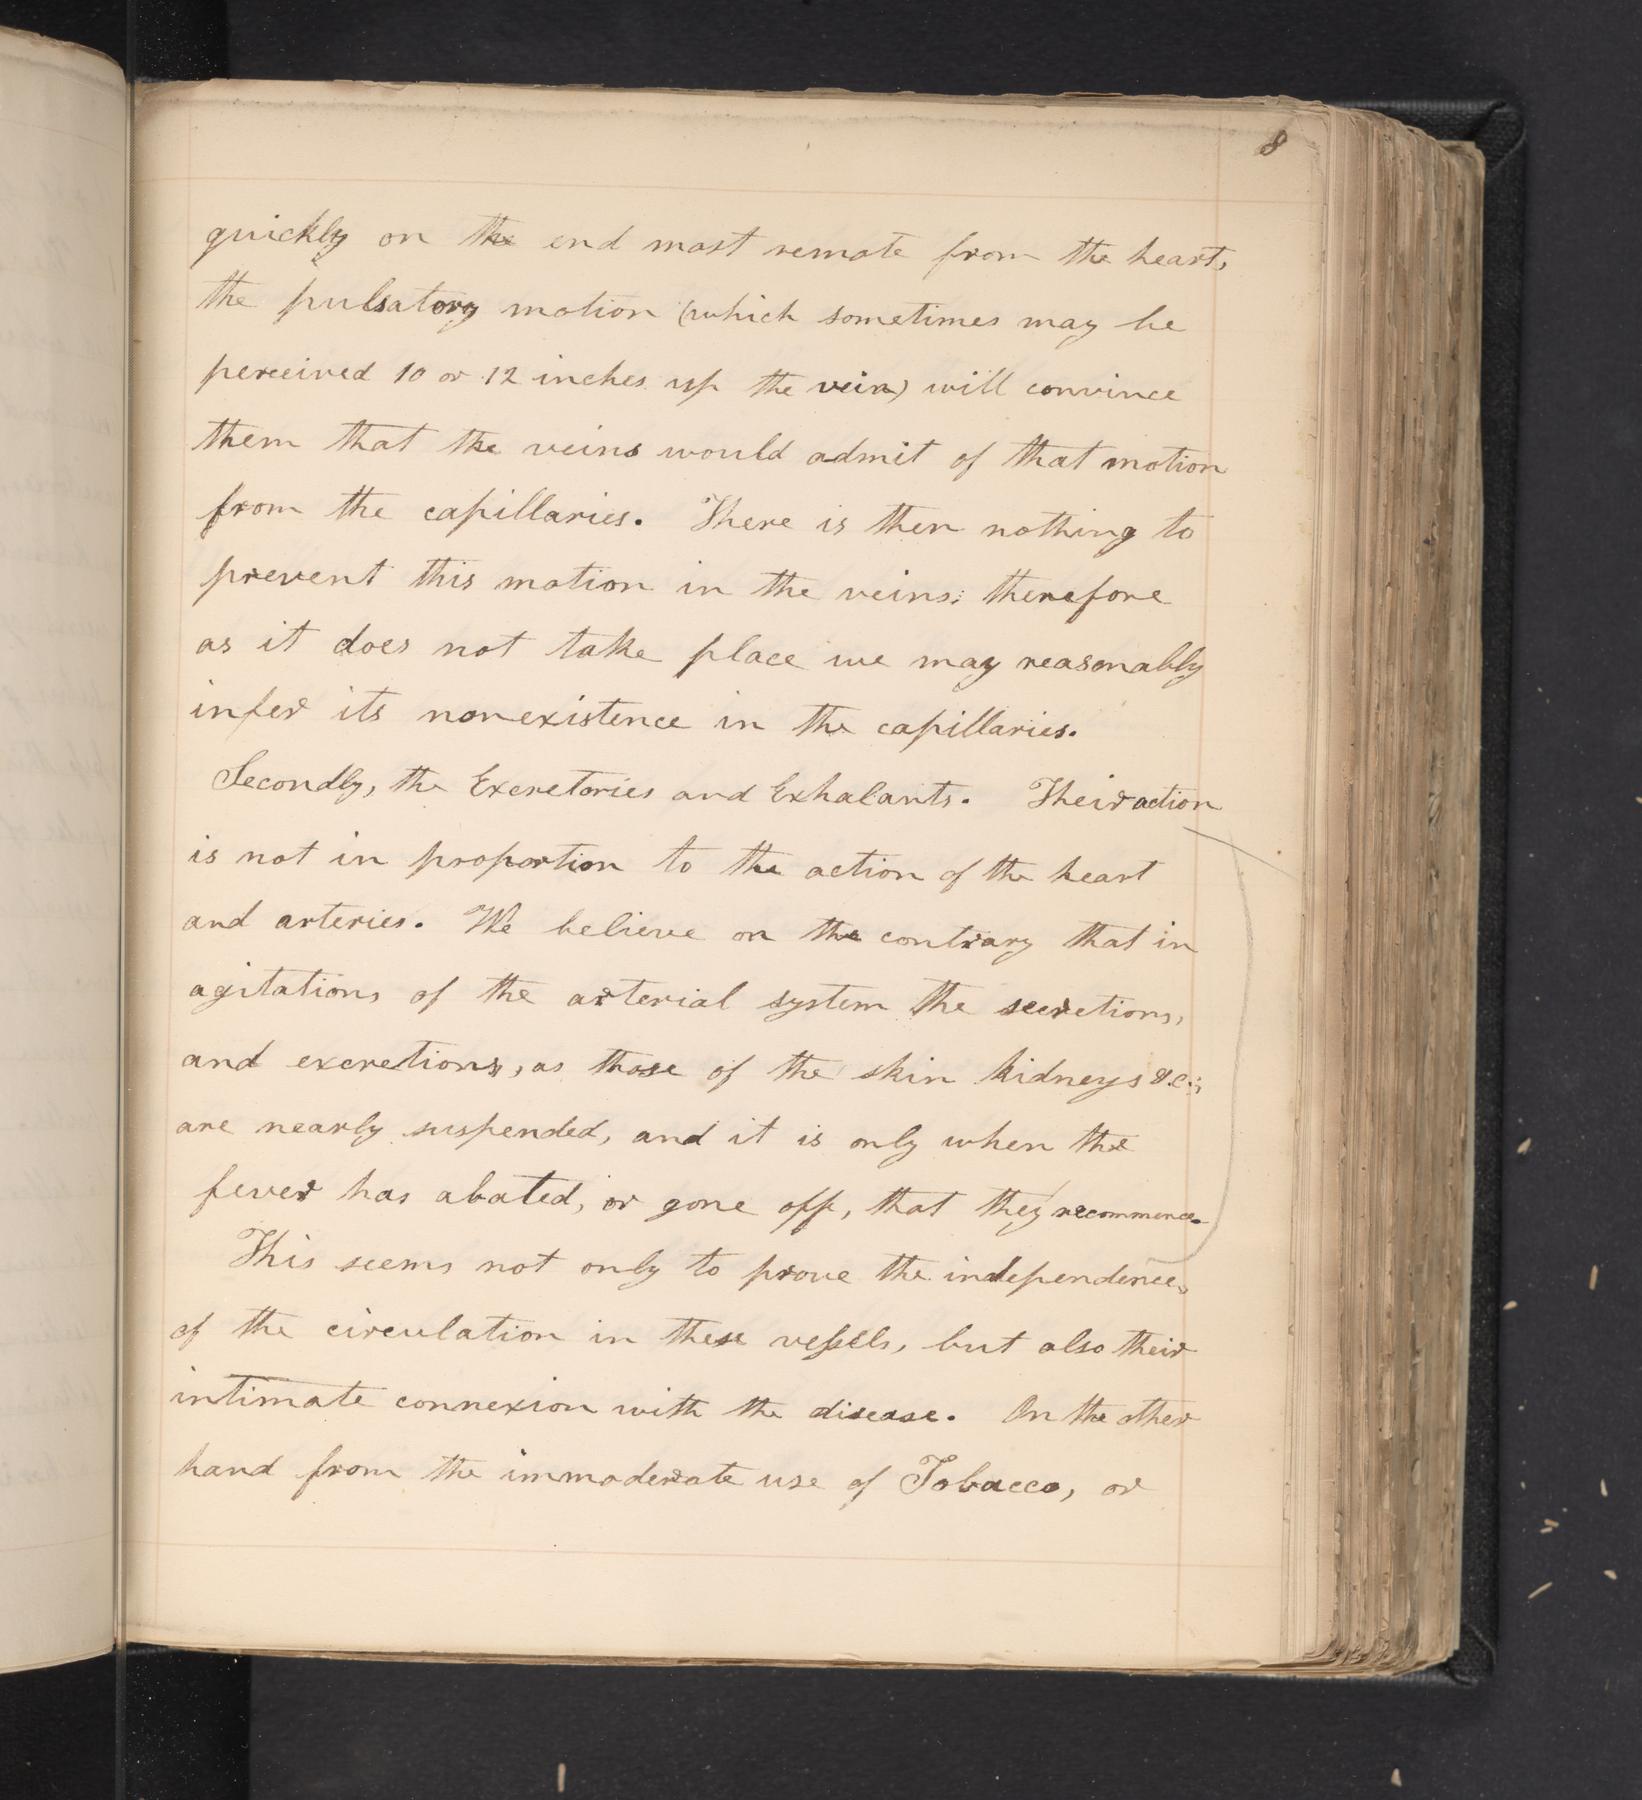 8
quickly on the end most remote from the heart,
the pulsatory motion (which sometimes may be
perceived 10 or 12 inches up the vein) will convince
them that the veins would admit of that motion
from the capillaries. There is then nothing to
prevent this motion in the veins; therefore
as it does not take place we may reasonably
infer its nonexistence in the capillaries.
Secondly, the Excretories and Exhalants. Their action
is not in proportion to the action of the heart
and arteries. We believe on the contrary that in
agitations of the arterial system the secretions,
and excretions, as those of the skin kidneys &c;
are nearly suspended, and it is only when the
fever has abated, or gone off, that they recommence.
This seems not only to prove the independence,
of the circulation in these vessels, but also their
intimate connexion with the disease. On the other
hand from the immoderate use of Tobacco, or